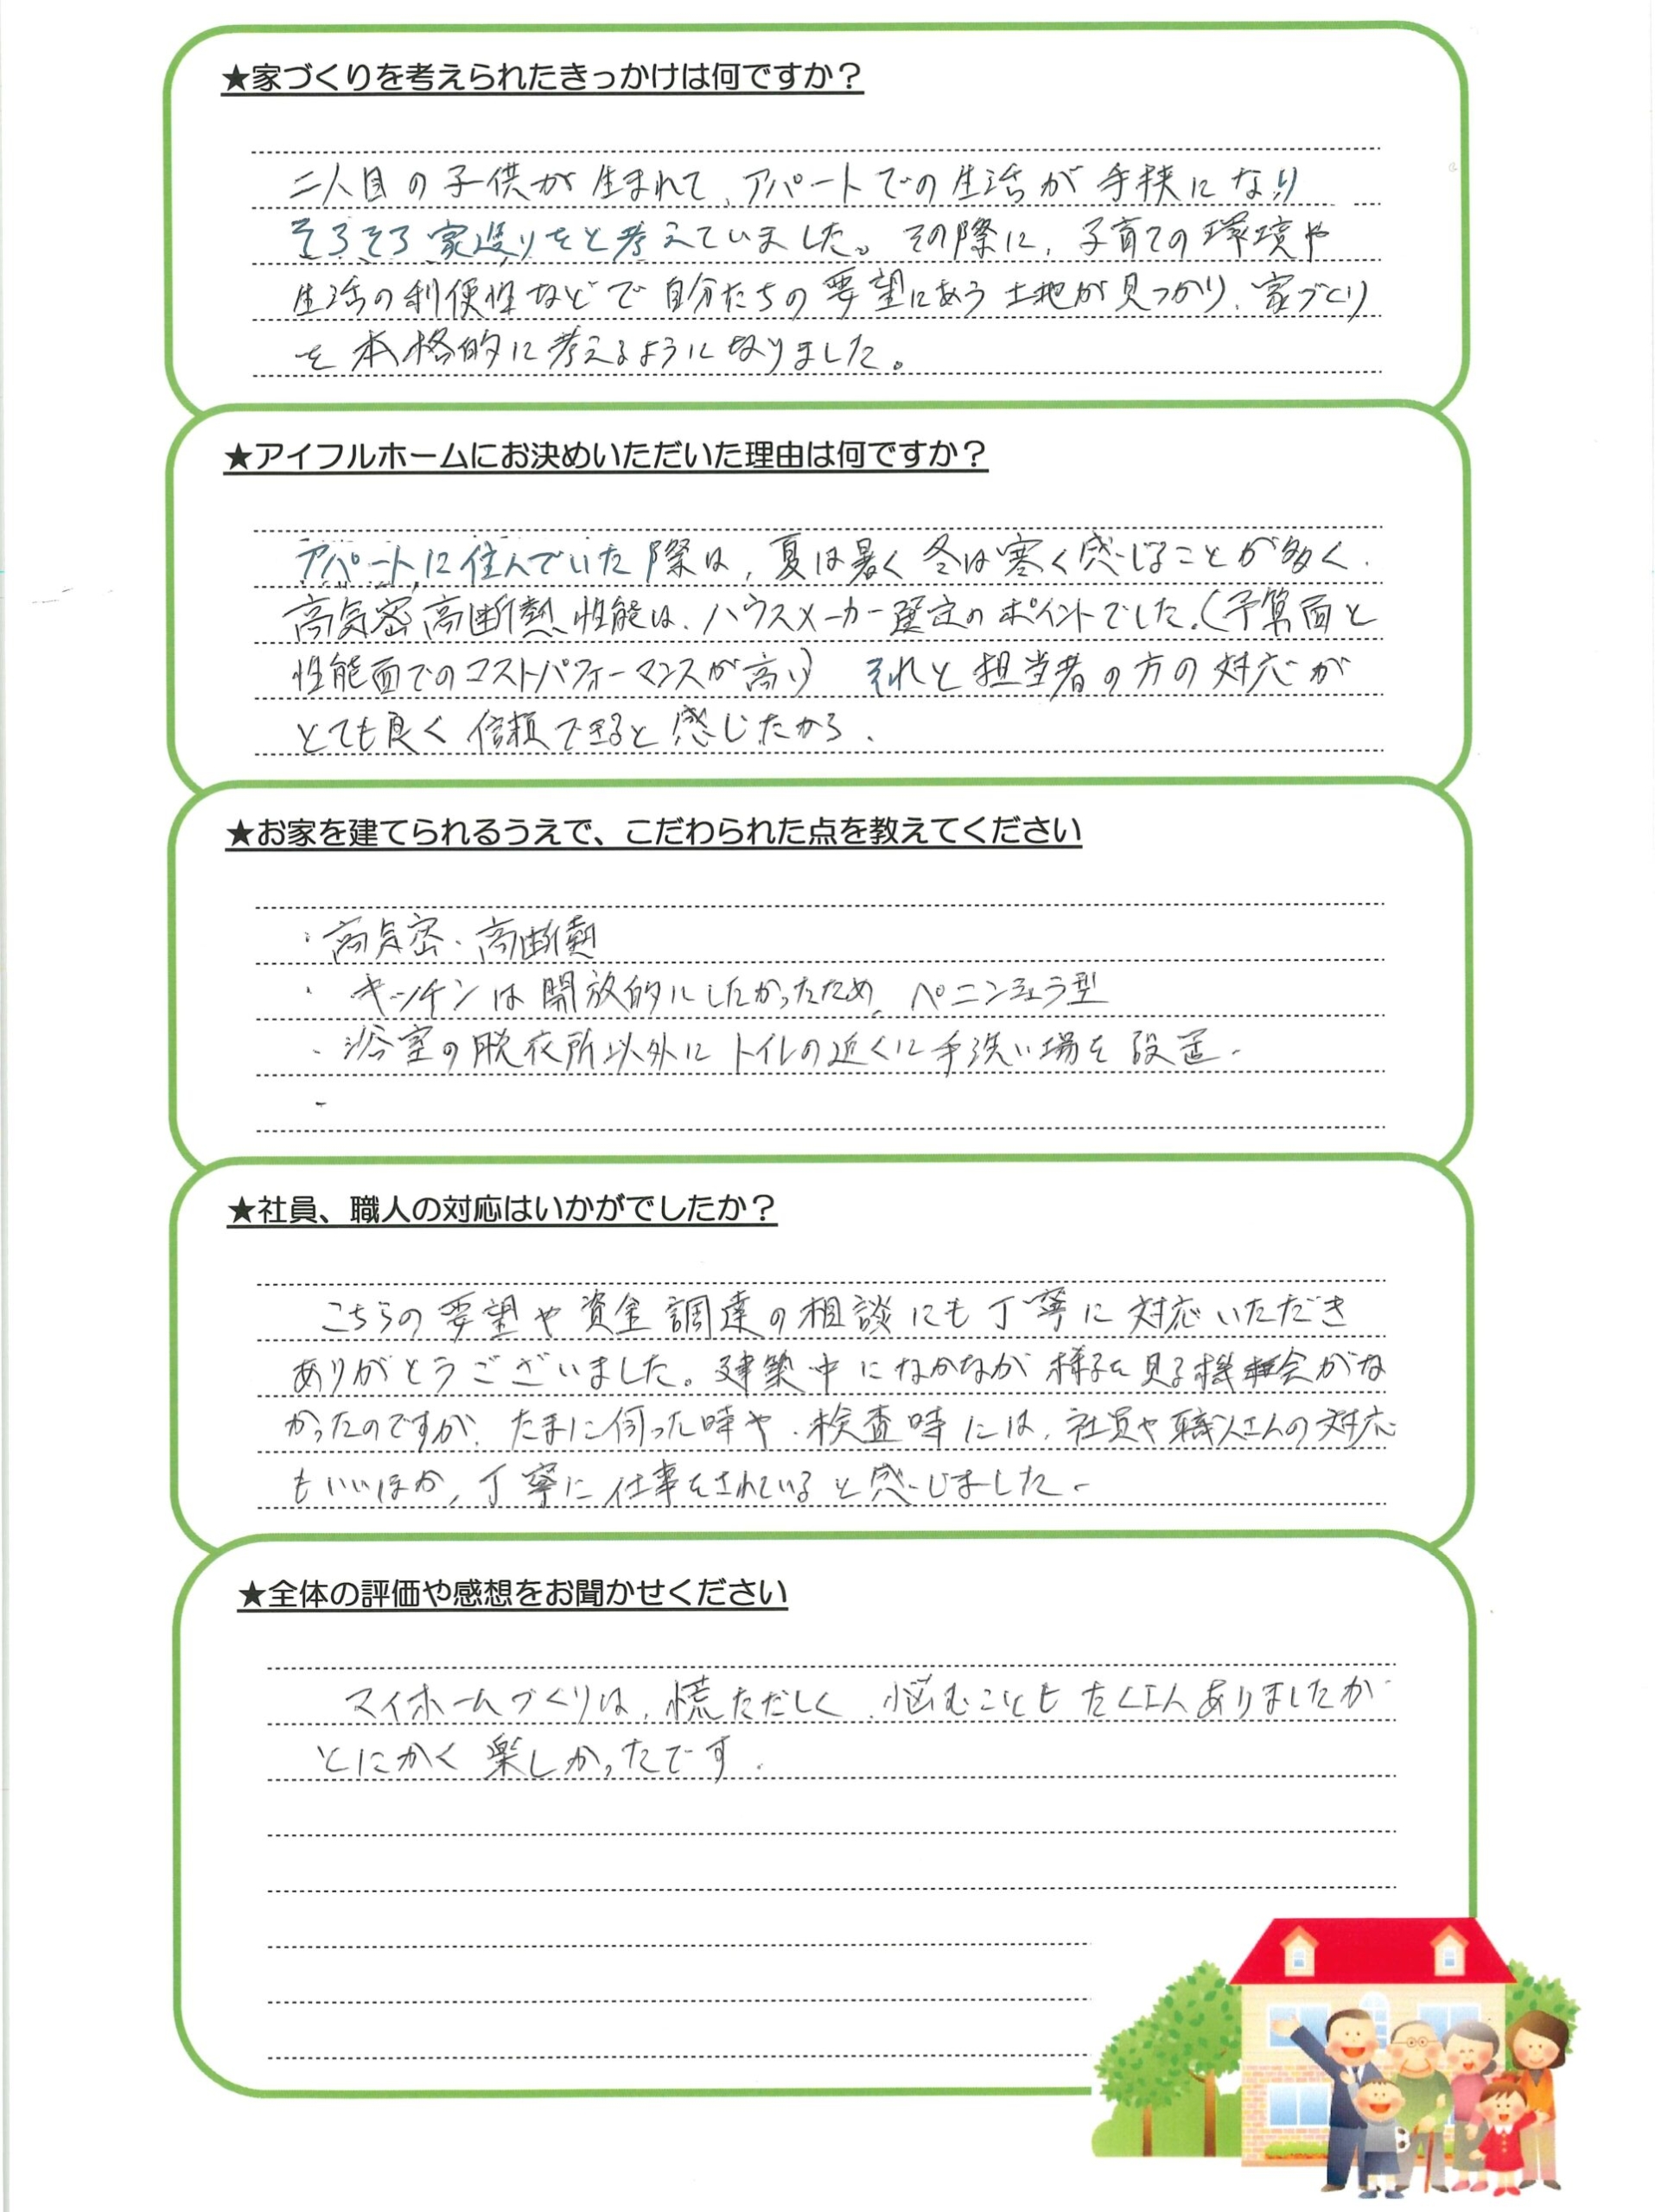 ★家づくりを考えられたきっかけは何ですか？
二人目の子供が生まれて、アパートでの生活が手狭になり
そろそろ家造りをと考えていました。その際に、子育ての環境や
生活の利便性などで自分たちの要望にあう土地が見つかり、家づくり
を本格的に考えるようになりました。
★アイフルホームにお決めいただいた理由は何ですか？
アパートに住んでいた際は、夏は暑く冬は寒く感じることが多く、
高気密高断熱性能は、ハウスメーカー選定のポイントでした。（予算面と
性能面でのコストパフォーマンスが高い）それと担当者の方の対応が
とても良く信頼できると感じたから。
★お家を建てられるうえで、こだわられた点を教えてください
・高気密、高断熱
・キッチンは開放的にしたかったため、ペニンシュラ型
・浴室の脱衣所以外にトイレの近くに手洗い場を設置。
★社員、職人の対応はいかがでしたか？
こちらの要望や資金調達の相談にも丁寧に対応いただき
ありがとうございました。建築中になかなか様子を見る機会がな
かったのですが、たまに伺った時や、検査時には、社員や職人さんの対応
もいいほか、丁寧に仕事をされていると感じました。
★全体の評価や感想をお聞かせください
マイホームづくりは、慌ただしく、悩むこともたくさんありましたが
とにかく楽しかったです。